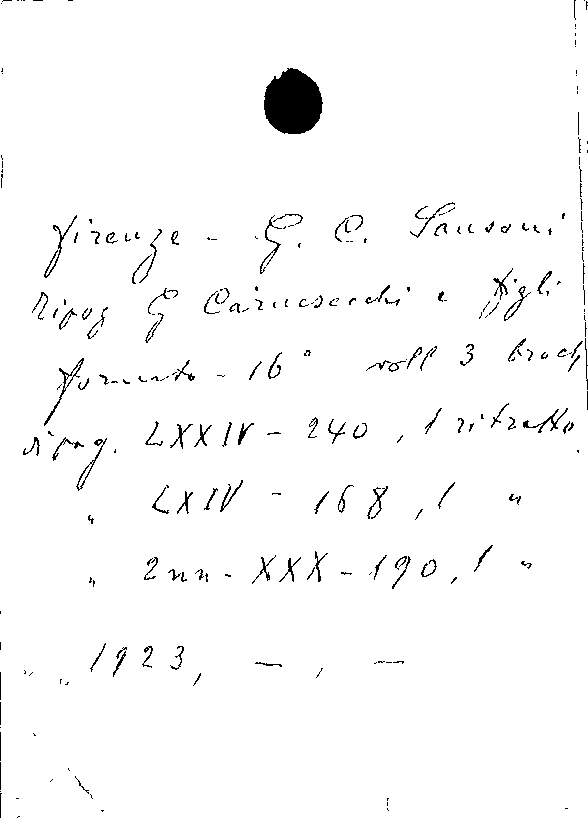 Firenze - G. C. Sansoni
Tipog G Carnesecchi e figli
formato - 16° voll 3 broch
di pag. LXXIV - 240, 1 ritratto.
" LXIV - 168, 1 "
" 2nn - XXX - 190, 1 "
" " 1923, — , —